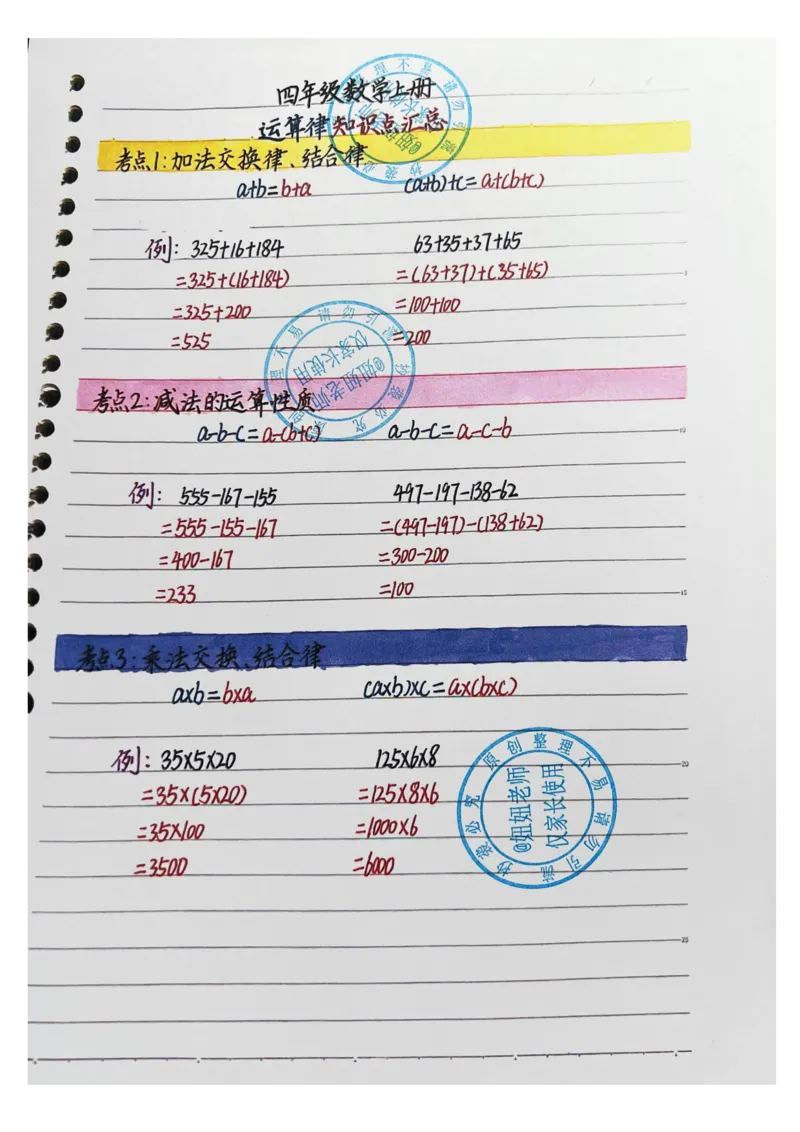 四年级数学上册
运算律知识点汇总
考点1:加法交换律、结合律
a+b=b+a (a+b)+c=a+(b+c)
例: 325+16+184 63+35+37+65
=325+(16+184) =(63+37)+(35+65)
=325+200 =100+100
=525 =200
考点2:减法的运算性质
a-b-c=a-(b+c) a-b-c=a-c-b
例: 555-167-155 497-197-138-62
=555-155-167 =(497-197)-(138+62)
=400-167 =300-200
=233 =100
考点3:乘法交换、结合律
a×b=b×a (a×b)×c=a×(b×c)
例: 35×5×20 125×6×8
=35×(5×20) =125×8×6
=35×100 =1000×6
=3500 =6000
原创整理不易 请勿引 抄袭必究
@妞妞老师
仅家长使用